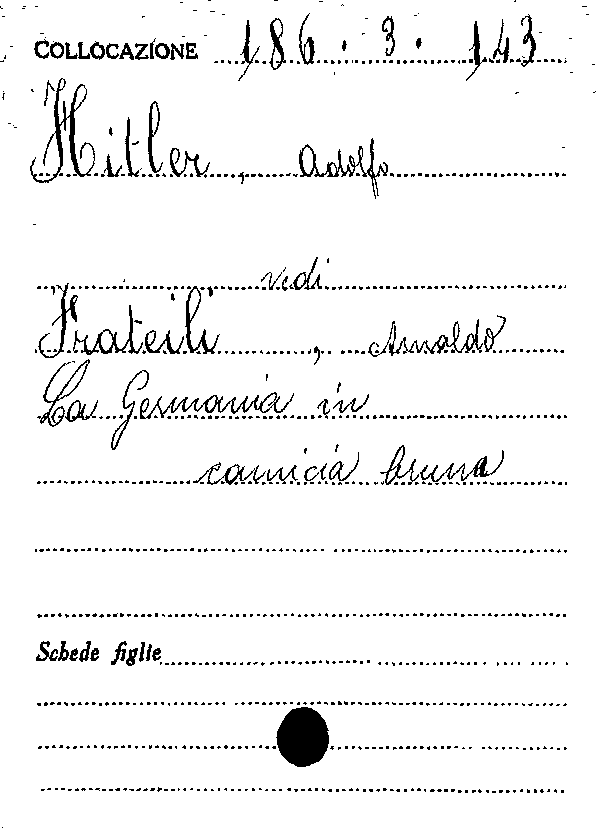 COLLOCAZIONE 186.3.143
Hitler, Adolfo
vedi
Frateili, Arnaldo
La Germania in
camicia bruna
Schede figlie